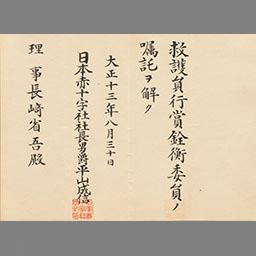 救護員行賞銓衡委員ノ
嘱託ヲ解ク
大正十三年八月三十日
日本赤十字社社長男爵平山成信
理事長﨑省吾殿